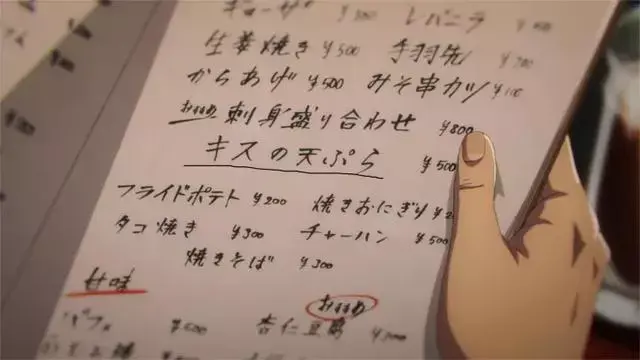 ギョーザ ¥300 レバニラ
生姜焼き ¥500 手羽先 ¥700
からあげ ¥500 みそ串カツ ¥100
おすすめ 刺身盛り合わせ ¥800
キスの天ぷら ¥500
フライドポテト ¥200 焼きおにぎり
タコ焼き ¥300 チャーハン ¥500
焼きそば ¥300
甘味 おすすめ
パフェ ¥500 杏仁豆腐 ¥300